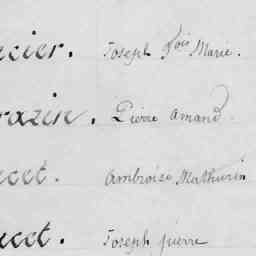 ecier. Joseph fois Marie.
razin. Pierre amand.
ucet. Ambroise Mathurin
ucet. Joseph pierre